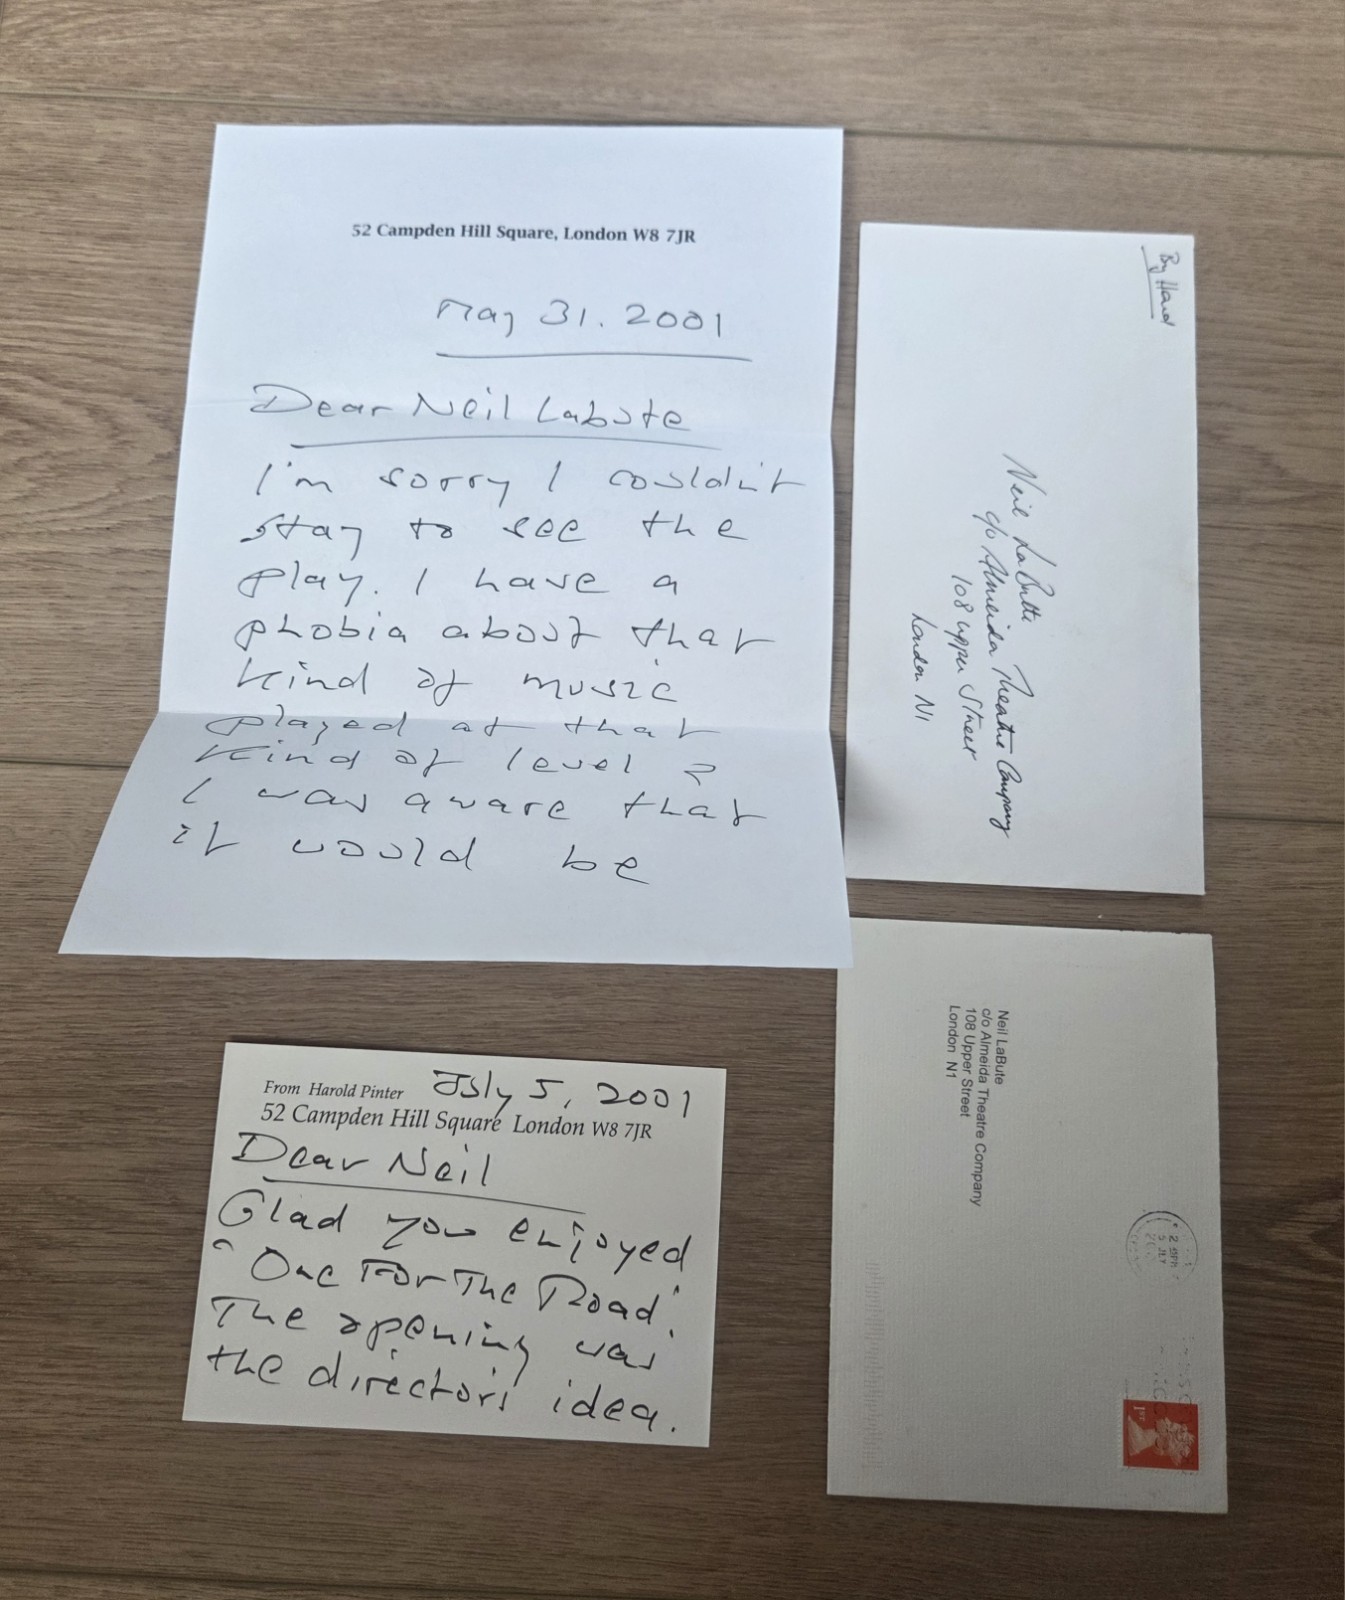 52 Campden Hill Square, London W8 7JR
May 31. 2001
Dear Neil Labute
I'm sorry I couldn't
stay to see the
play. I have a
phobia about that
kind of music
played at that
kind of level &
I was aware that
it would be
By Hand
Neil LaBute
c/o Almeida Theatre Company
108 Upper Street
London N1
From Harold Pinter July 5, 2001
52 Campden Hill Square London W8 7JR
Dear Neil
Glad you enjoyed
"One For The Road".
The opening was
the director's idea.
Neil LaBute
c/o Almeida Theatre Company
108 Upper Street
London N1
5 JLY
1ST